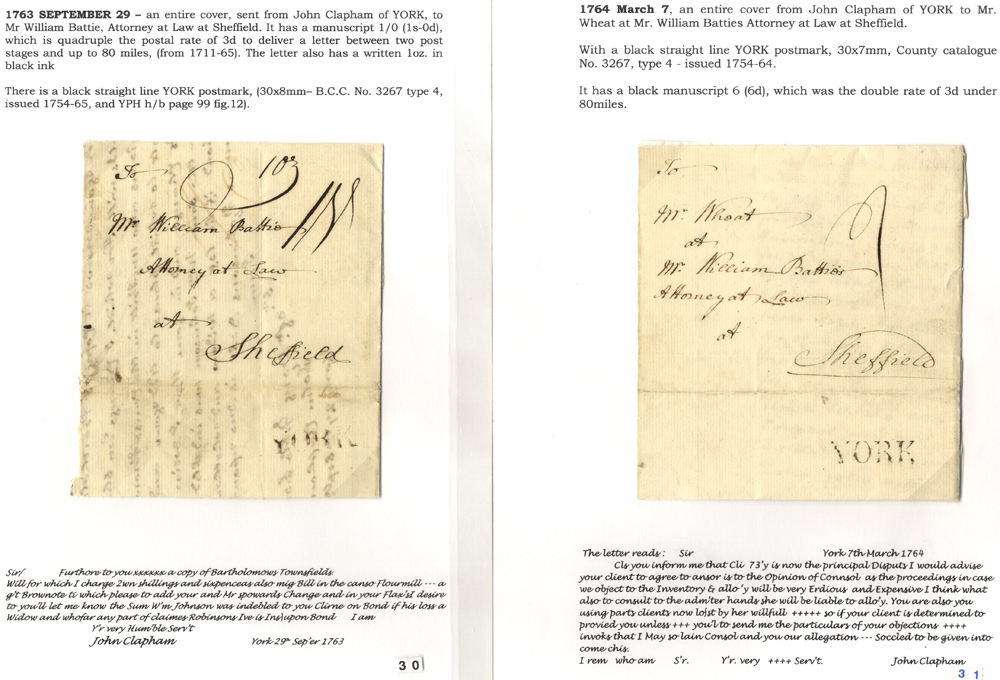 1763 SEPTEMBER 29 – an entire cover, sent from John Clapham of YORK, to
Mr William Battie, Attorney at Law at Sheffield. It has a manuscript 1/0 (1s-0d),
which is quadruple the postal rate of 3d to deliver a letter between two post
stages and up to 80 miles, (from 1711-65). The letter also has a written 1oz. in
black ink
There is a black straight line YORK postmark, (30x8mm– B.C.C. No. 3267 type 4,
issued 1754-65, and YPH h/b page 99 fig.12).
To
Mr William Battie
Attorney at Law
at
Sheffield
YORK
Sir/ Furthore to you xxxxxx a copy of Bartholomows Townsfields
Will for which I charge 2wn shillings and sixpenceas also mig Bill in the canso Flourmill --- a
g't Brownote ti which please to add your and Mr spowards Change and in your Flax'sI desire
to you'll let me know the Sum W'm Johnson was indebled to you Clirne on Bond if his loss a
Widow and whofar any part of claimes Robinsons Ive is Ins\upon Bond I am
Y'r very Hum'ble Serv't
John Clapham York 29th Sep'er 1763
30
1764 March 7, an entire cover from John Clapham of YORK to Mr.
Wheat at Mr. William Batties Attorney at Law at Sheffield.
With a black straight line YORK postmark, 30x7mm, County catalogue
No. 3267, type 4 - issued 1754-64.
It has a black manuscript 6 (6d), which was the double rate of 3d under
80miles.
To
Mr. Wheat
at
Mr. William Batties
Attorney at Law
at
Sheffield
YORK
The letter reads : Sir York 7th March 1764
Cls you inform me that Cli 73'y is now the principal Disputs I would advise
your client to agree to ansor is to the Opinion of Connsol as the proceedings in case
we object to the Inventory & allo 'y will be very Erdious and Expensive I think what
also to consult to the adm'ter hands she will be liable to allo'y. You are also you
using parts clients now lo\st by her willfull ++++ so if your client is determined to
provied you unless +++ you'l to send me the particulars of your objections ++++
invoks that I May so lain Consol and you our allegation --- Soccled to be given into
come chis.
I rem who am S'r. Y'r. very ++++ Serv't. John Clapham
31